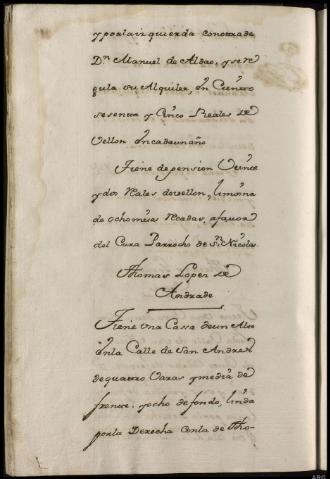 y por la izquierda con otra de
Dn Manuel de Aldao, y se re
gula su Alquiler, en Ciento
sesenta y Cinco Reales de
Vellon en cada un año
Tiene de pension Veinte
y dos Reales de vellon, limosna
de ocho misas Rezadas, a favor
del Cura Parrocho de Sn Nicolas
Thomas Lopez de
Andrade
Tiene Una Cassa de un Alto
en la Calle de San Andres
de quatro Varas y media de
frente, y ocho de fondo, linda
por la Derecha con la de Tho-